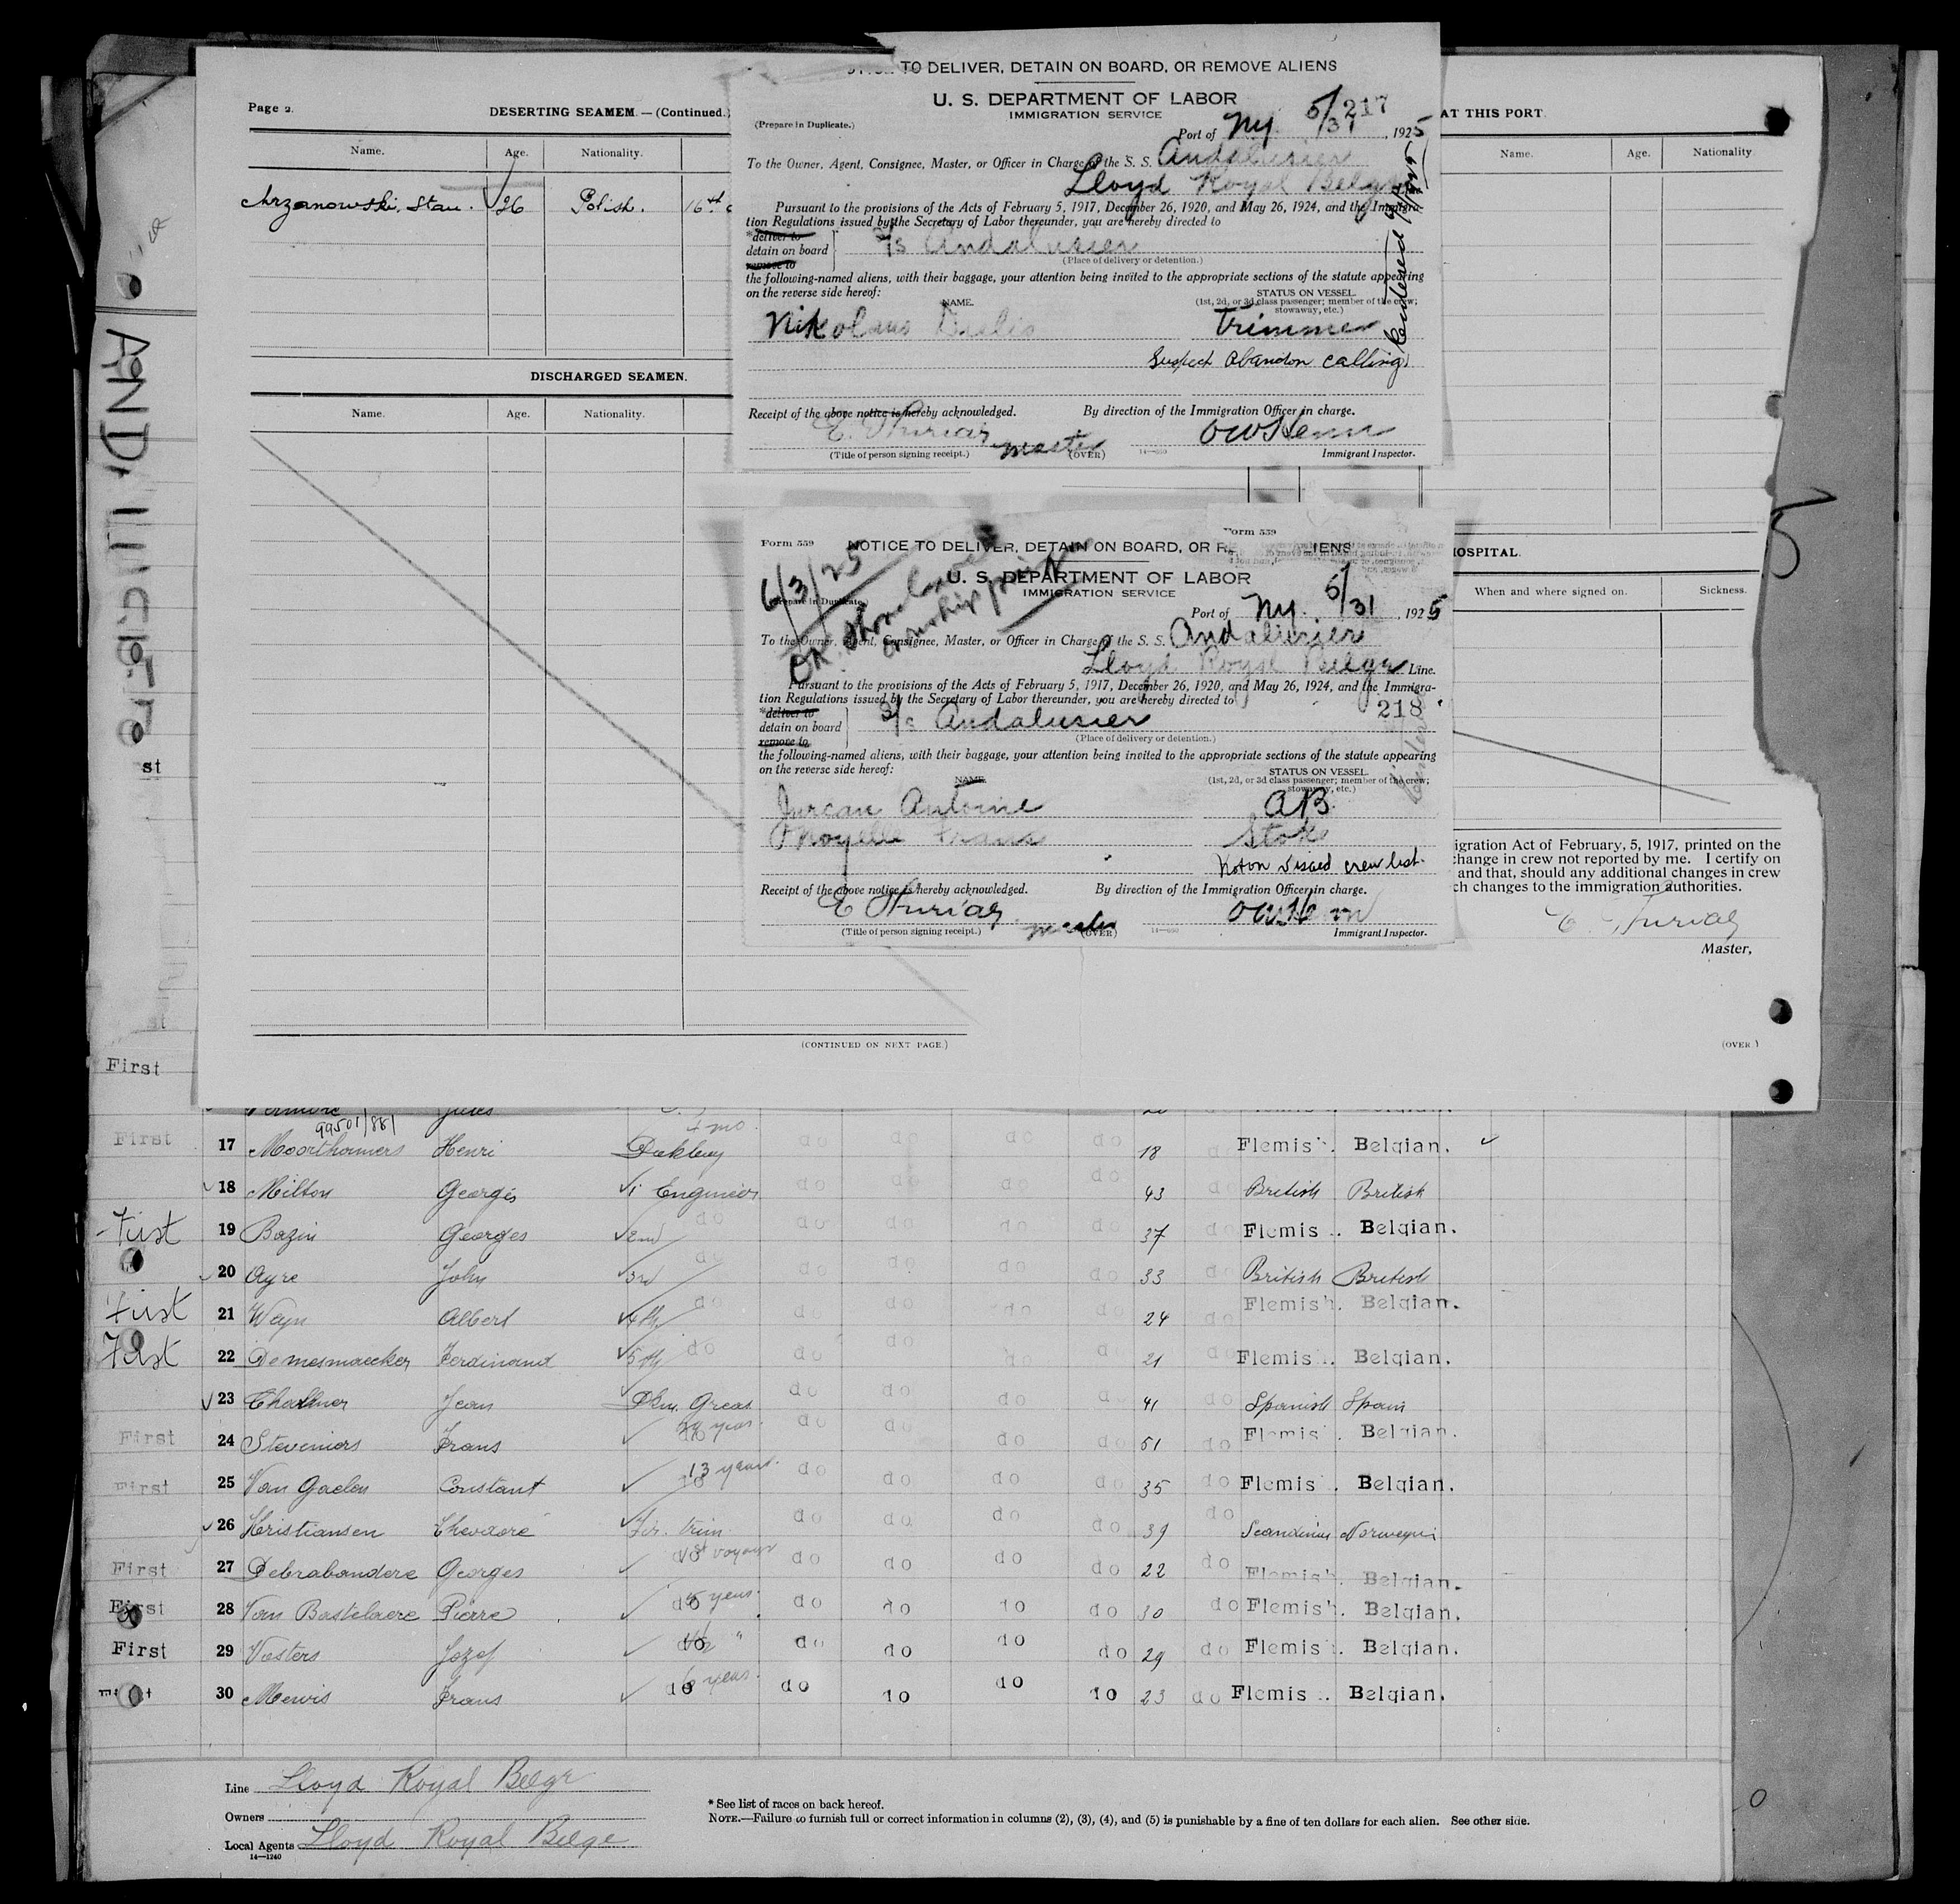 TO DELIVER, DETAIN ON BOARD, OR REMOVE ALIENS
U. S. DEPARTMENT OF LABOR
IMMIGRATION SERVICE
(Prepare in Duplicate.)
217
Port of Ny. 5/31, 1925
To the Owner, Agent, Consignee, Master, or Officer in Charge of the S. S. Andalusier
Lloyd Royal Belge
Pursuant to the provisions of the Acts of February 5, 1917, December 26, 1920, and May 26, 1924, and the Immigra-
tion Regulations issued by the Secretary of Labor thereunder, you are hereby directed to
*deliver to
detain on board S/S Andalusier
remove to
(Place of delivery or detention.)
the following-named aliens, with their baggage, your attention being invited to the appropriate sections of the statute appearing
on the reverse side hereof:
NAME.
STATUS ON VESSEL.
(1st, 2d, or 3d class passenger; member of the crew;
stowaway, etc.)
Nikolaus trimmer
Suspect abandon calling.
Receipt of the above notice is hereby acknowledged. By direction of the Immigration Officer in charge.
master
(Title of person signing receipt.) (OVER) Immigrant Inspector.
Page 2.
DESERTING SEAMEM.—(Continued.)
AT THIS PORT.
Name. Age. Nationality. Name. Age. Nationality
Chrzanowski, Stan. 26 Polish. 16th
DISCHARGED SEAMEN.
HOSPITAL.
Name. Age. Nationality. When and where signed on. Sickness.
Form 559
Form 559
NOTICE TO DELIVER, DETAIN ON BOARD, OR RE ALIENS
U. S. DEPARTMENT OF LABOR
IMMIGRATION SERVICE
(Prepare in Duplicate.)
6/3/25
Port of Ny. 5/31, 1925
To the Owner, Agent, Consignee, Master, or Officer in Charge of the S. S. Andalusier
Lloyd Royal Belge Line.
Pursuant to the provisions of the Acts of February 5, 1917, December 26, 1920, and May 26, 1924, and the Immigra-
tion Regulations issued by the Secretary of Labor thereunder, you are hereby directed to
218
*deliver to
detain on board S/S Andalusier
remove to
(Place of delivery or detention.)
the following-named aliens, with their baggage, your attention being invited to the appropriate sections of the statute appearing
on the reverse side hereof:
NAME.
STATUS ON VESSEL.
(1st, 2d, or 3d class passenger; member of the crew;
stowaway, etc.)
Jurcan Antoine AB
Frans Stok
Not on visaed crew list.
Receipt of the above notice is hereby acknowledged. By direction of the Immigration Officer in charge.
master
(Title of person signing receipt.) (OVER) Immigrant Inspector.
igration Act of February, 5, 1917, printed on the
change in crew not reported by me. I certify on
and that, should any additional changes in crew
ch changes to the immigration authorities.
Master,
(CONTINUED ON NEXT PAGE.)
(OVER)
st
st
First
99501/881
First 17 Moorthamers Henri do do do do 18 do Flemish. Belgian.
18 Milton Georges 1 Engineer do do do do 43 do British British
First 19 Bazin Georges 2nd do do do do do 37 do Flemis. Belgian.
20 Ayre John 3rd do do do do do 33 do British British
First 21 Weyn Albert 4th do do do do do 24 do Flemish. Belgian.
First 22 Demesmaecker Ferdinand 5th do do do do 21 do Flemis. Belgian.
23 Jean Dkm. Greas do do do do 41 do Spanish Spain
First 24 Steveniers Frans do do do do do 51 do Flemis. Belgian.
First 25 Van Gaelen Constant 13 years. do do do do 35 do Flemis. Belgian.
26 Kristiansen Theodore Fir. trim do do do do 39 do Norwegian
First 27 Debrabandere Georges 1st voyage do do do do 22 do Flemish. Belgian.
First 28 Van Bastelaere Pierre do years. do do do do 30 do Flemish. Belgian.
First 29 Vosters Jozef do " do do do do 29 do Flemis. Belgian.
30 Mewis Frans do 6 years. do do do do 23 do Flemis. Belgian.
Line Lloyd Royal Belge
Owners
Local Agents Lloyd Royal Belge
14—1240
* See list of races on back hereof.
NOTE.—Failure to furnish full or correct information in columns (2), (3), (4), and (5) is punishable by a fine of ten dollars for each alien. See other side.